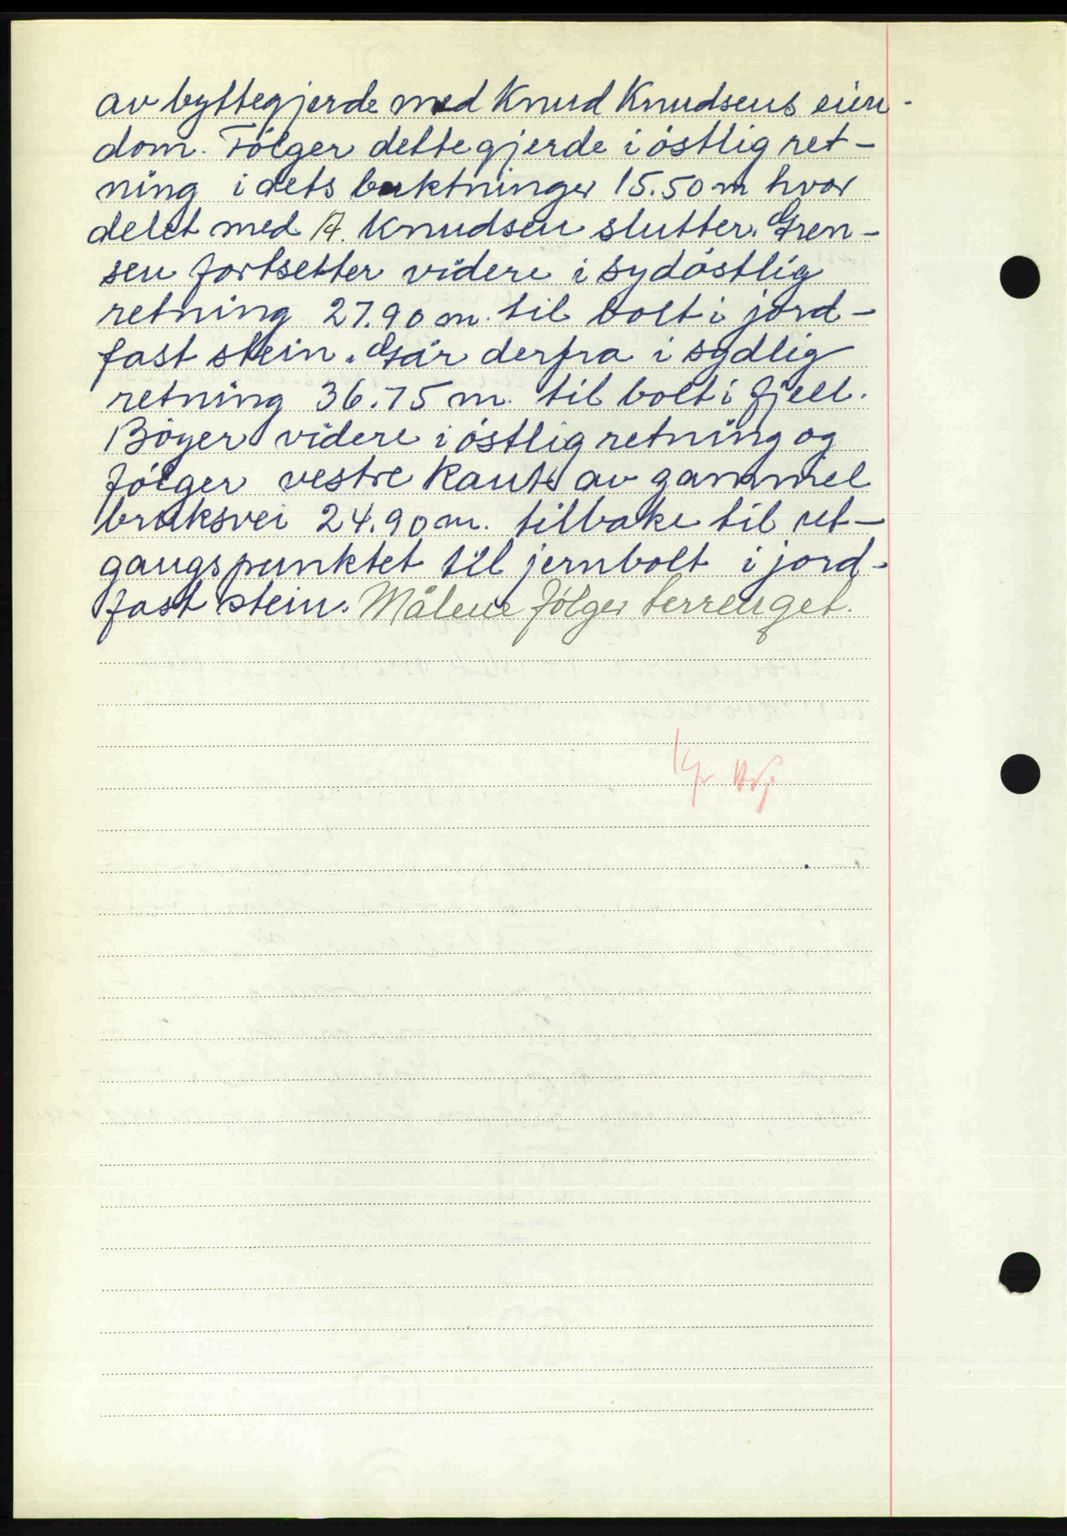 av byttegjerde med Knud Knudsens eien-
dom. Følger dette gjerde i østlig ret-
ning i dets buktninger 15.50 m hvor
delet med A. Knudsen slutter. Gren-
sen fortsetter videre i sydøstlig
retning 27.90 m. til bolt i jord-
fast stein. Går derfra i sydlig
retning 36.75 m. til bolt i fjell.
Bøyer videre i østlig retning og
følger vestre kant av gammel
bruksvei 24.90 m. tilbake til ut-
gangspunktet til jernbolt i jord-
fast stein. Målene følger terrenget.